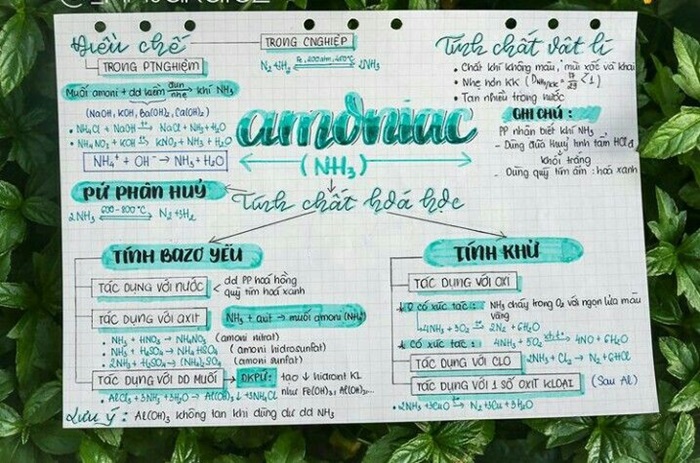 Điều chế
TRONG CNGHIỆP
N₂ + 3H₂ ⇌ 2NH₃
TRONG PTNGHIỆM
Muối amoni + dd kiềm đun nhẹ → khí NH₃
(NaOH, KOH, Ba(OH)₂, Ca(OH)₂)
• NH₄Cl + NaOH → NaCl + NH₃ + H₂O
• NH₄NO₃ + KOH → KNO₃ + NH₃ + H₂O
NH₄⁺ + OH⁻ → NH₃ + H₂O
Tính chất vật lí
• Chất khí không màu, mùi xốc và khai
• Nhẹ hơn KK
• Tan nhiều trong nước
GHI CHÚ:
PP nhận biết khí NH₃
- Dùng đũa thuỷ tinh tẩm HCl đ
khói trắng
- Dùng quỳ tím ẩm: hoá xanh
amoniac
(NH₃)
PỨ PHÂN HUỶ
2NH₃ 600-800°C ⇌ N₂ + 3H₂
Tính chất hoá học
TÍNH BAZƠ YẾU
TÁC DỤNG VỚI NƯỚC
dd PP hoá hồng
quỳ tím hoá xanh
TÁC DỤNG VỚI AXIT
NH₃ + axit → muối amoni (NH₄⁺)
• NH₃ + HNO₃ → NH₄NO₃ (amoni nitrat)
• NH₃ + H₂SO₄ → NH₄HSO₄ (amoni hidrosunfat)
• 2NH₃ + H₂SO₄ → (NH₄)₂SO₄ (amoni sunfat)
TÁC DỤNG VỚI DD MUỐI
ĐKPƯ:
tạo ↓ hidroxit KL
như Fe(OH)₃, Al(OH)₃,...
• AlCl₃ + 3NH₃ + 3H₂O → Al(OH)₃↓ + 3NH₄Cl
Lưu ý: Al(OH)₃ không tan khi dùng dư dd NH₃
TÍNH KHỬ
TÁC DỤNG VỚI OXI
ko có xúc tác: NH₃ cháy trong O₂ với ngọn lửa màu
vàng
4NH₃ + 3O₂ → 2N₂ + 6H₂O
có xúc tác: 4NH₃ + 5O₂ → 4NO + 6H₂O
TÁC DỤNG VỚI CLO
2NH₃ + Cl₂ → N₂ + 6HCl
TÁC DỤNG VỚI 1 SỐ OXIT KLOẠI (Sau Al)
• 2NH₃ + 3CuO → N₂ + 3Cu + 3H₂O